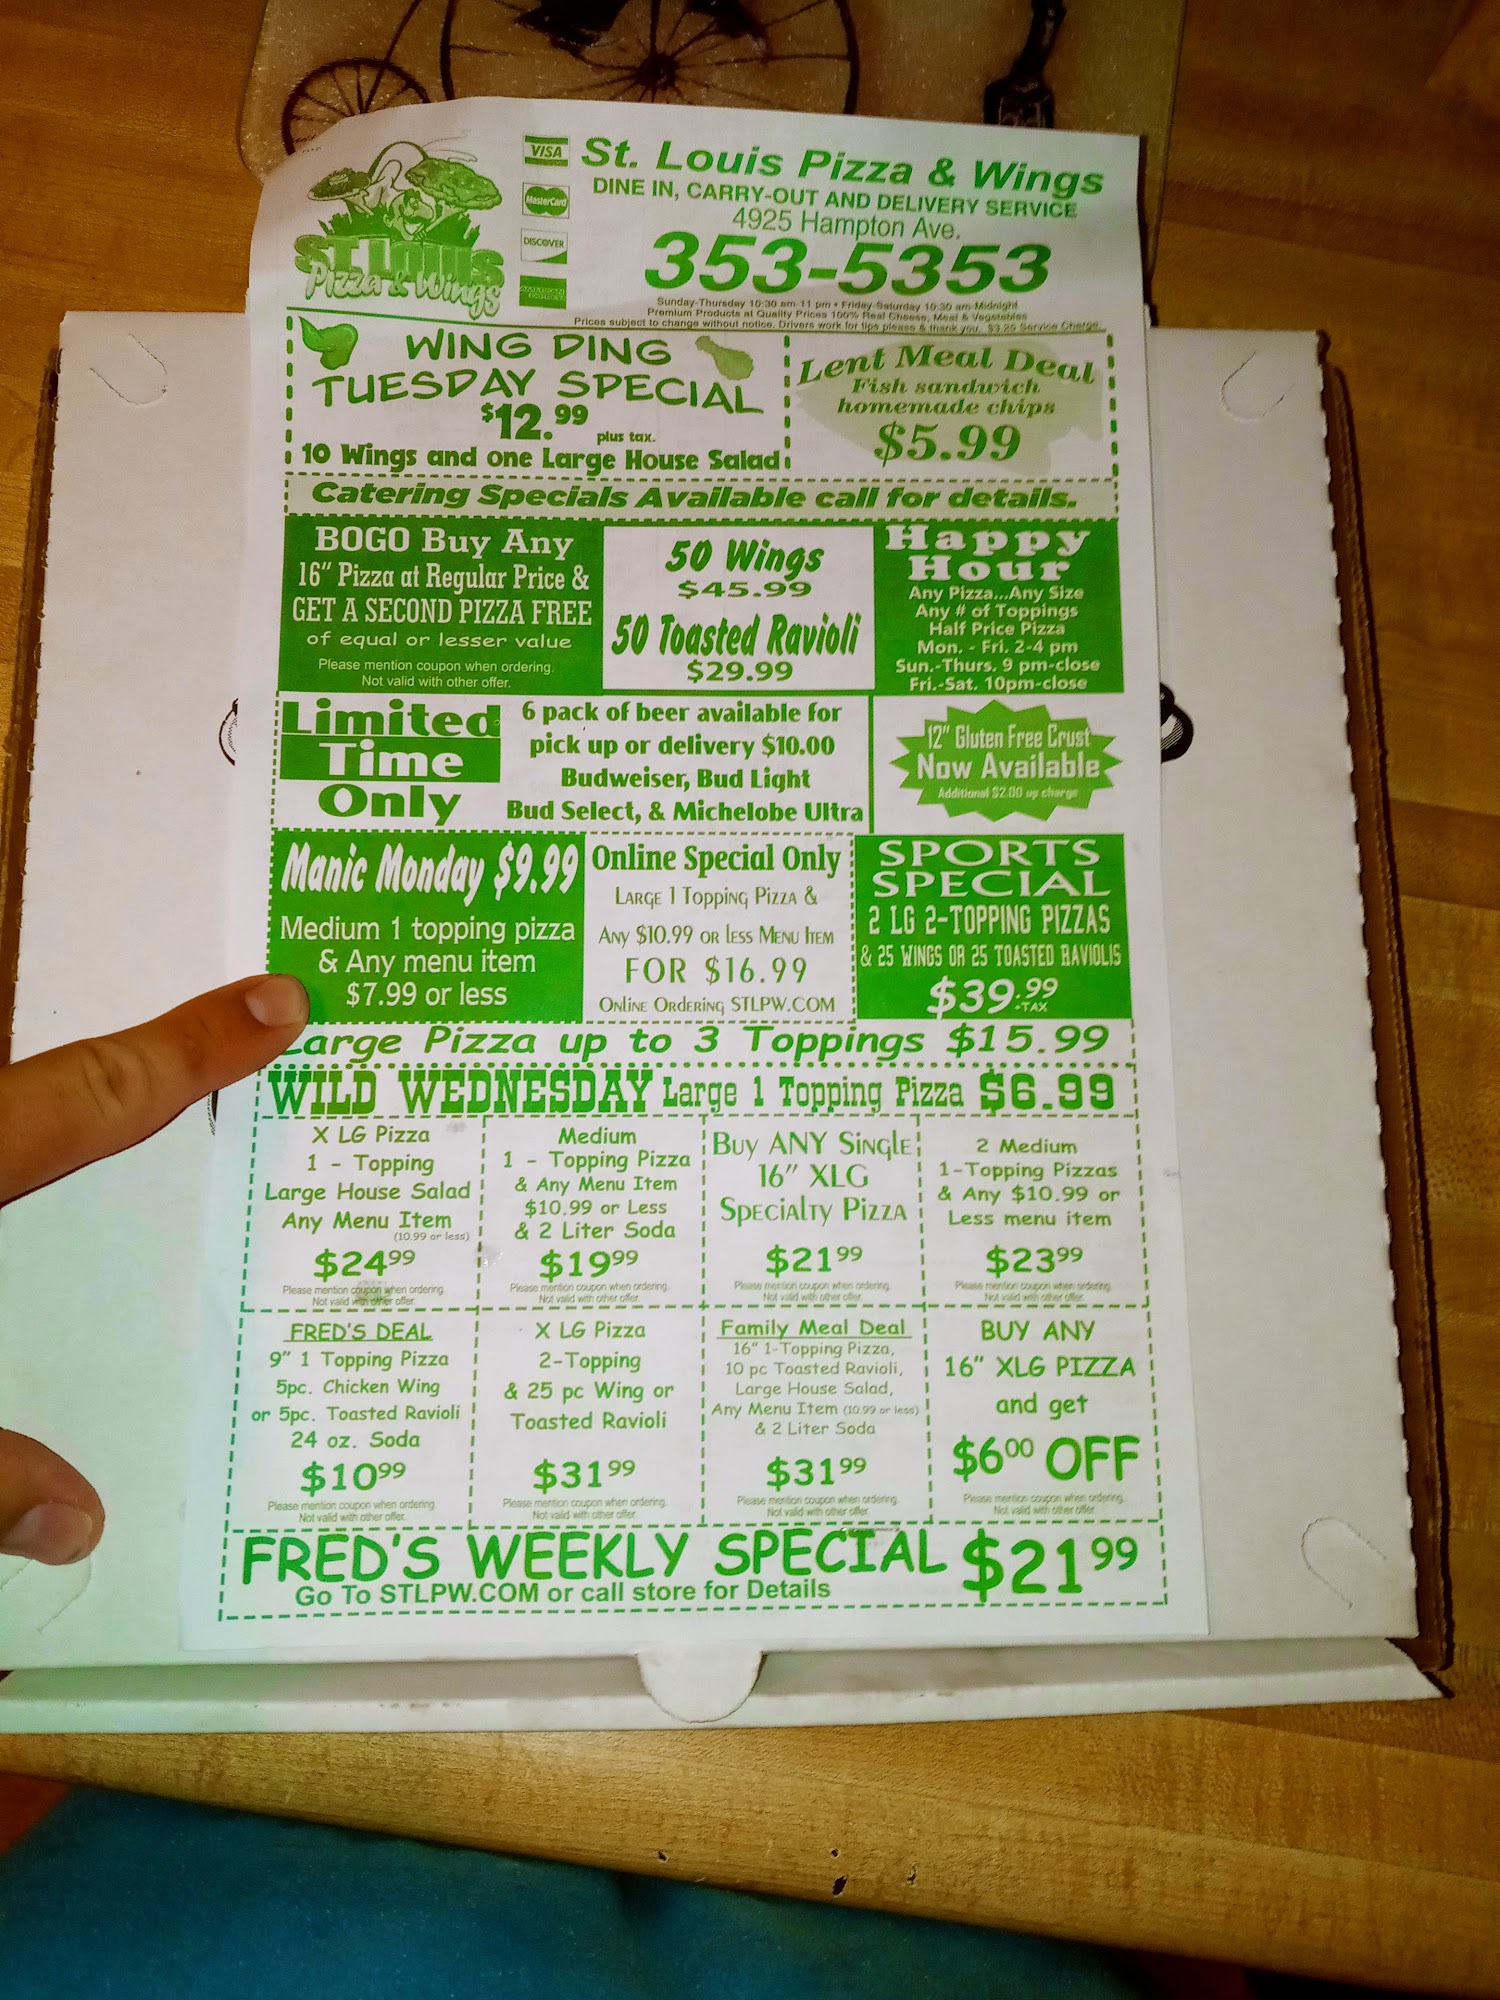 ST. LOUIS
Pizza & Wings
VISA
MasterCard
DISCOVER
AMERICAN EXPRESS
St. Louis Pizza & Wings
DINE IN, CARRY-OUT AND DELIVERY SERVICE
4925 Hampton Ave.
353-5353
Sunday-Thursday 10:30 am-11 pm • Friday-Saturday 10:30 am-Midnight
Premium Products at Quality Prices 100% Real Cheese, Meat & Vegetables
Prices subject to change without notice. Drivers work for tips please & thank you. $3.25 Service Charge.
WING DING
TUESDAY SPECIAL
$12.99 plus tax.
10 Wings and one Large House Salad
Lent Meal Deal
Fish sandwich
homemade chips
$5.99
Catering Specials Available call for details.
BOGO Buy Any
16" Pizza at Regular Price &
GET A SECOND PIZZA FREE
of equal or lesser value
Please mention coupon when ordering.
Not valid with other offer.
50 Wings
$45.99
50 Toasted Ravioli
$29.99
Happy
Hour
Any Pizza...Any Size
Any # of Toppings
Half Price Pizza
Mon. - Fri. 2-4 pm
Sun.-Thurs. 9 pm-close
Fri.-Sat. 10pm-close
Limited
Time
Only
6 pack of beer available for
pick up or delivery $10.00
Budweiser, Bud Light
Bud Select, & Michelobe Ultra
12" Gluten Free Crust
Now Available
Additional $2.00 up charge
Manic Monday $9.99
Medium 1 topping pizza
& Any menu item
$7.99 or less
Online Special Only
Large 1 Topping Pizza &
Any $10.99 or less Menu Item
FOR $16.99
Online Ordering STLPW.COM
SPORTS
SPECIAL
2 LG 2-TOPPING PIZZAS
& 25 WINGS OR 25 TOASTED RAVIOLIS
$39.99
+TAX
Large Pizza up to 3 Toppings $15.99
WILD WEDNESDAY Large 1 Topping Pizza $6.99
X LG Pizza
1 - Topping
Large House Salad
Any Menu Item
(10.99 or less)
$24.99
Please mention coupon when ordering.
Not valid with other offer.
Medium
1 - Topping Pizza
& Any Menu Item
$10.99 or Less
& 2 Liter Soda
$19.99
Please mention coupon when ordering.
Not valid with other offer.
Buy ANY Single
16" XLG
Specialty Pizza
$21.99
Please mention coupon when ordering.
Not valid with other offer.
2 Medium
1-Topping Pizzas
& Any $10.99 or
Less menu item
$23.99
Please mention coupon when ordering.
Not valid with other offer.
FRED'S DEAL
9" 1 Topping Pizza
5pc. Chicken Wing
or 5pc. Toasted Ravioli
24 oz. Soda
$10.99
Please mention coupon when ordering.
Not valid with other offer.
X LG Pizza
2-Topping
& 25 pc Wing or
Toasted Ravioli
$31.99
Please mention coupon when ordering.
Not valid with other offer.
Family Meal Deal
16" 1-Topping Pizza,
10 pc Toasted Ravioli,
Large House Salad,
Any Menu Item (10.99 or less)
& 2 Liter Soda
$31.99
Please mention coupon when ordering.
Not valid with other offer.
BUY ANY
16" XLG PIZZA
and get
$6.00 OFF
Please mention coupon when ordering.
Not valid with other offer.
FRED'S WEEKLY SPECIAL $21.99
Go To STLPW.COM or call store for Details